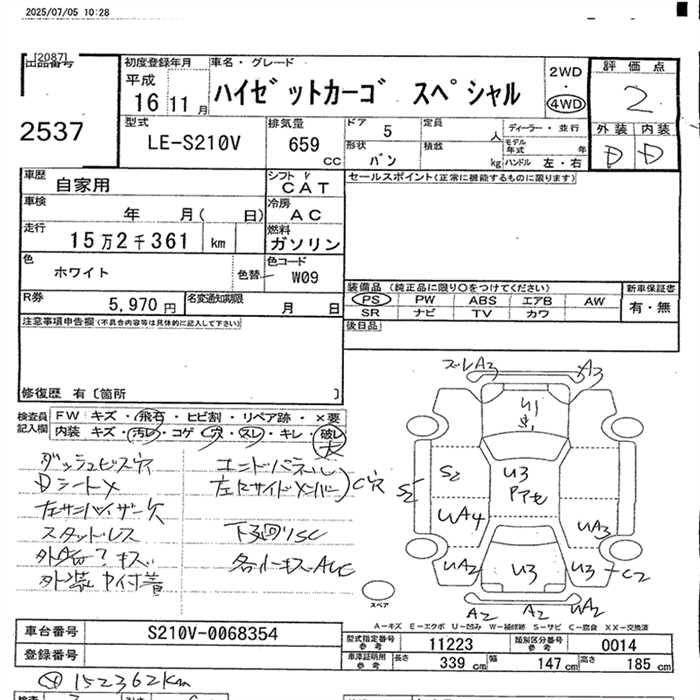 2025/07/05 10:28
[2087]
出品番号
2537
初度登録年月
平成
16 11月
車名・グレード
ハイゼットカーゴ スペシャル
2WD
・
4WD
評価点
2
外装 内装
D D
型式
LE-S210V
排気量
659
CC
ドア 5
定員 人
形状 バン
積載 kg
ディーラー・並行
モデル年式 年
ハンドル 左・右
車歴
自家用
シフト
CAT
車検
年 月( 日)
冷房
AC
走行
15万2千361 km
燃料
ガソリン
色
ホワイト
色替
色コード
W09
R券
5,970円
名変通知期限
月 日
セールスポイント(正常に機能するものに限ります)
装備品 (純正品に限り○をつけてください)
PS PW ABS エアB AW
SR ナビ TV カワ
新車保証書
有・無
後日品
注意事項申告欄(不具合内容等は具体的に記入して下さい)
修復歴 有〔箇所 〕
検査員記入欄
FW キズ・飛石・ヒビ割・リペア跡・×要
内装 キズ・汚レ・コゲ・穴・スレ・キレ・破レ
大
ダッシュビス穴
Dシート×
左サンバイザー欠
スタッドレス
外装 ヤニ付着
エンドパネル
左右サイドメンバー)C穴
下回りSC
ズレA3
A3
U1
S2
U3
S2
UA4
UA3
UA2
U3
U3
C2
A2
A2
UA2
スペア
A-キズ E-エクボ U-凹み W-補修跡 S-サビ C-腐食 XX-交換済
車台番号
S210V-0068354
登録番号
型式指定番号
参考
11223
類別区分番号
参考
0014
車庫証明用
参考
長さ 339cm 幅 147cm 高さ 185cm
152362km